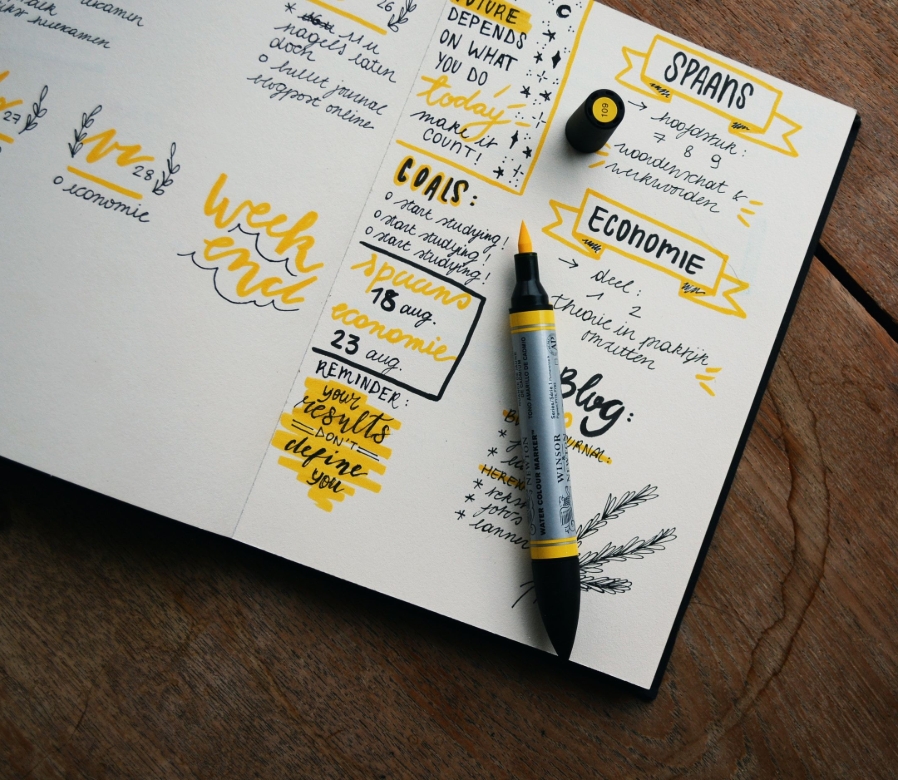 examen
26
* 11 u
nagels laten
doen
o bullet journal
blogpost online
27
vr 28
o economie
week
end
FUTURE
DEPENDS
ON WHAT
YOU DO
today
make it
COUNT!
GOALS:
o start studying!
o start studying!
o start studying!
spaans
18 aug.
economie
23 aug.
REMINDER:
your
results
DON'T
define
you
SPAANS
→ hoofdstuk:
7 8 9
woordenschat &
werkwoorden
109
ECONOMIE
→ deel:
1 2
theorie in praktijk
omzetten
Blog:
JOURNAL:
WINSOR
NEWTON
WATER COLOUR MARKER™